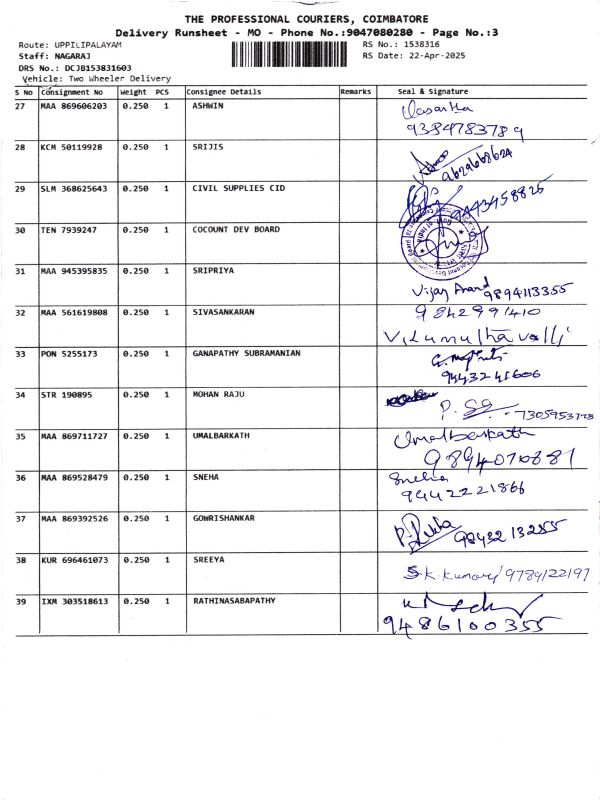 THE PROFESSIONAL COURIERS, COIMBATORE
Delivery Runsheet - MO - Phone No.:9047080280 - Page No.:3
Route: UPPILIPALAYAM RS No.: 1538316
Staff: NAGARAJ RS Date: 22-Apr-2025
DRS No.: DCJB153831603
Vehicle: Two Wheeler Delivery
S No Consignment No Weight PCS Consignee Details Remarks Seal & Signature
27 MAA 869606203 0.250 1 ASHWIN
9384783789
28 KCM 50119928 0.250 1 SRIJIS
9629668624
29 SLM 368625643 0.250 1 CIVIL SUPPLIES CID
30 TEN 7939247 0.250 1 COCOUNT DEV BOARD
31 MAA 945395835 0.250 1 SRIPRIYA
Vijay Anand 9894113355
32 MAA 561619808 0.250 1 SIVASANKARAN
9842991410
33 PON 5255173 0.250 1 GANAPATHY SUBRAMANIAN
9443241606
34 STR 190895 0.250 1 MOHAN RAJU
P.
35 MAA 869711727 0.250 1 UMALBARKATH
Umalbarkath
9894070881
36 MAA 869528479 0.250 1 SNEHA
Sneha
9442221866
37 MAA 869392526 0.250 1 GOWRISHANKAR
9843213255
38 KUR 696461073 0.250 1 SREEYA
S.K. Kumary/9789122197
39 IXM 303518613 0.250 1 RATHINASABAPATHY
9486100355